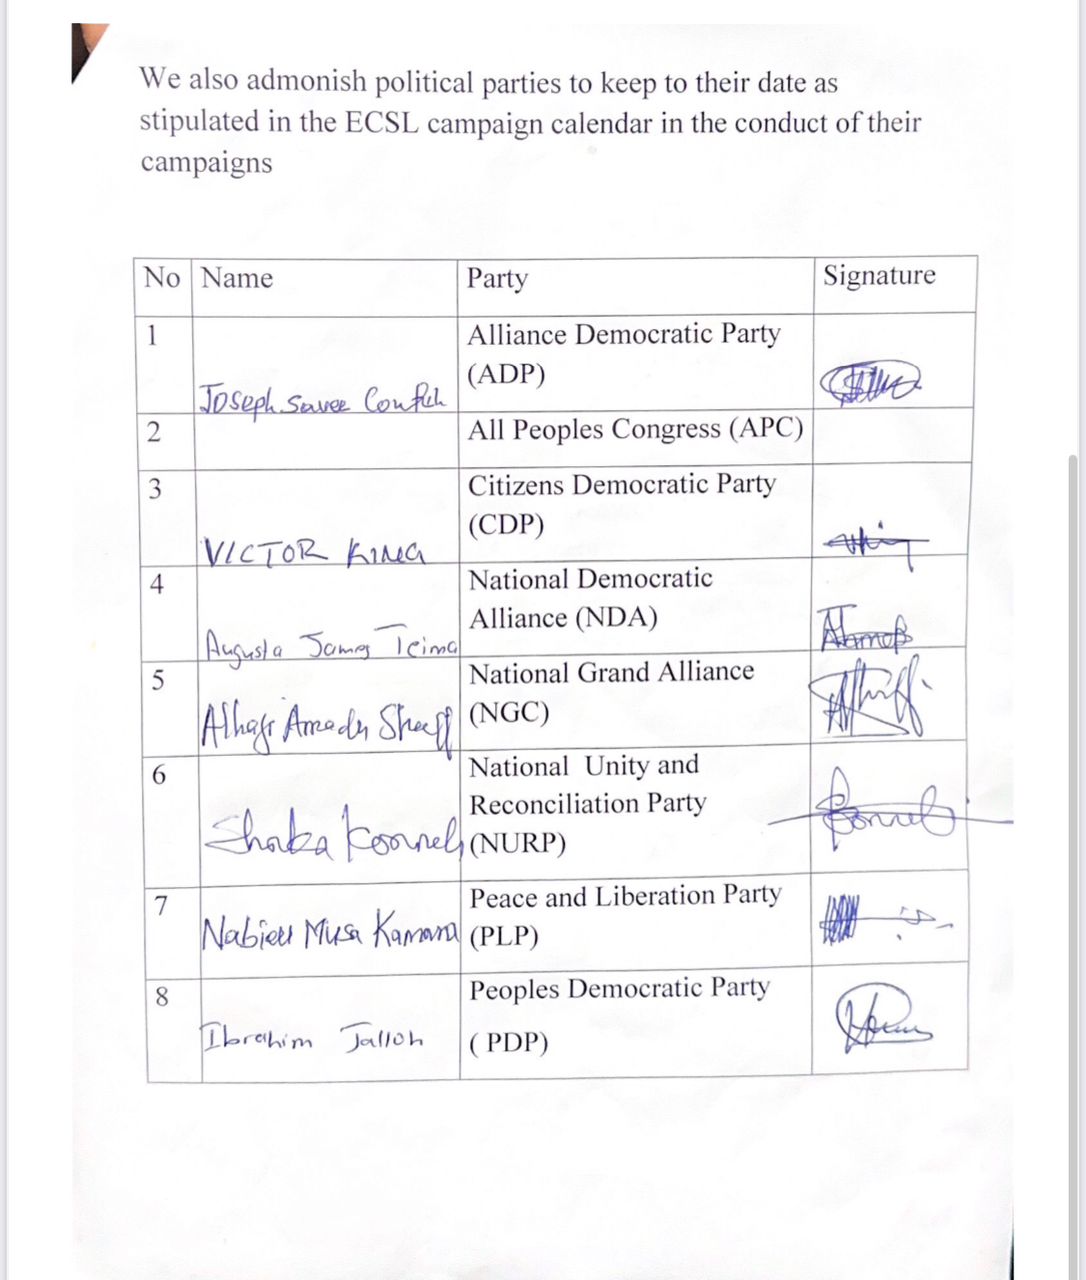 We also admonish political parties to keep to their date as
stipulated in the ECSL campaign calendar in the conduct of their
campaigns
No Name Party Signature
1 Alliance Democratic Party
(ADP)
Joseph
2 All Peoples Congress (APC)
3 Citizens Democratic Party
(CDP)
VICTOR KING
4 National Democratic
Alliance (NDA)
Augusta James Teima
5 National Grand Alliance
Alhaji Amadu Sheriff (NGC)
6 National Unity and
Reconciliation Party
Shaka (NURP)
7 Peace and Liberation Party
Nabieu Musa Kamara (PLP)
8 Peoples Democratic Party
Ibrahim Jalloh ( PDP)